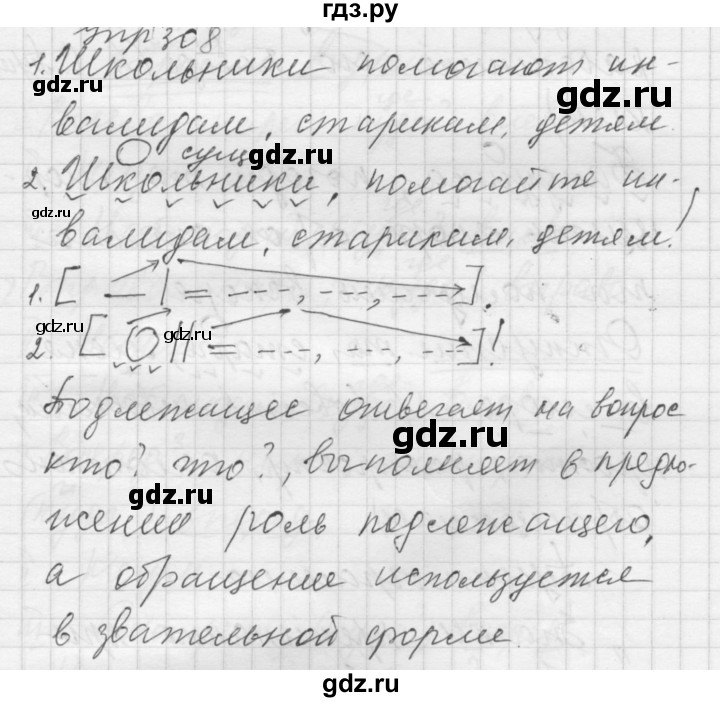 гдз.ру
Упр 308
1. Школьники помогают ин-
gdz.ru
валидам, старикам, детям.
сущ.
gdz.ru
2. Школьники, помогайте ин-
gdz.ru
валидам, старикам, детям!
gdz.ru
1. [ — | = ---, ---, --- ].
gdz.ru
gdz.ru
2. [ О || = ---, ---, --- ]!
Подлежащее отвечает на вопрос
gdz.ru
кто? что?, выполняет в предло-
gdz.ru
жении роль подлежащего,
а обращение используется
gdz.ru
в звательной форме.
gdz.ru